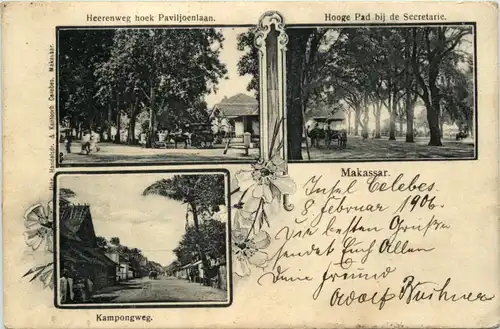 Heerenweg hoek Paviljoenlaan.
Hooge Pad bij de Secretarie.
Handelsdr. & Kantoorb. Celebes, Makassar.
Makassar.
Insel Celebes.
8 Februar 1906.
Die besten Grüße
sendet Euch Allen
Dein Freund
Adolf
Kampongweg.